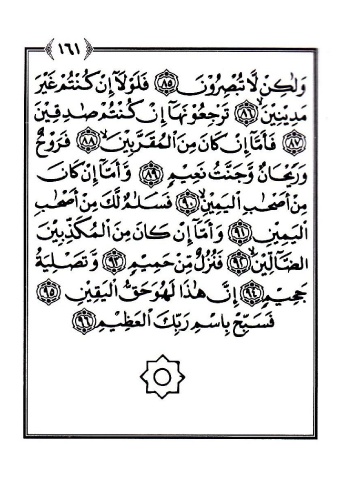 ١٦١
وَلَٰكِنْ لَّا تُبْصِرُوْنَ ۝٨٥ فَلَوْلَآ اِنْ كُنْتُمْ غَيْرَ
مَدِيْنِيْنَ ۙ۝٨٦ تَرْجِعُوْنَهَآ اِنْ كُنْتُمْ صٰدِقِيْنَ
۝٨٧ فَاَمَّآ اِنْ كَانَ مِنَ الْمُقَرَّبِيْنَ ۙ۝٨٨ فَرَوْحٌ
وَّرَيْحَانٌ وَّجَنَّتُ نَعِيْمٍ ۝٨٩ وَاَمَّآ اِنْ كَانَ
مِنْ اَصْحٰبِ الْيَمِيْنِ ۙ۝٩٠ فَسَلٰمٌ لَّكَ مِنْ اَصْحٰبِ
الْيَمِيْنِ ۝٩١ وَاَمَّآ اِنْ كَانَ مِنَ الْمُكَذِّبِيْنَ
الضَّآلِّيْنَ ۙ۝٩٢ فَنُزُلٌ مِّنْ حَمِيْمٍ ۙ۝٩٣ وَّتَصْلِيَةُ
جَحِيْمٍ ۝٩٤ اِنَّ هٰذَا لَهُوَ حَقُّ الْيَقِيْنِ ۝٩٥
فَسَبِّحْ بِاسْمِ رَبِّكَ الْعَظِيْمِ ۝٩٦